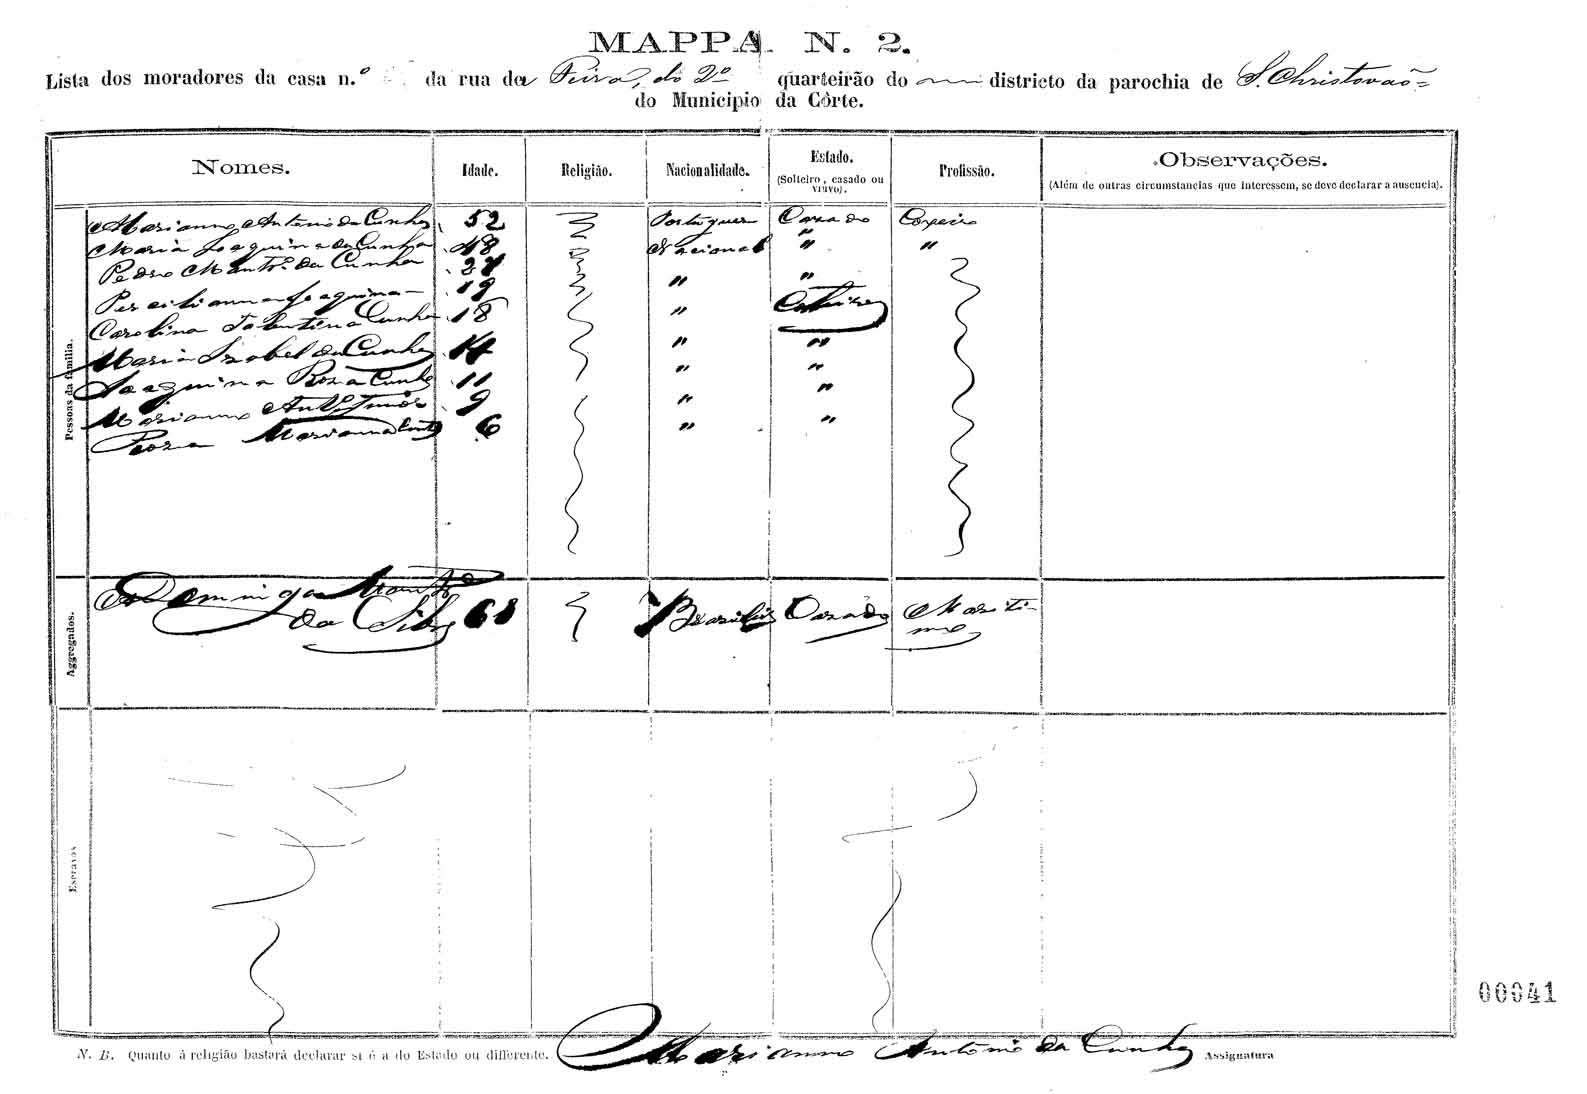 MAPPA N. 2.
Lista dos moradores da casa n.º da rua da Feira, do 2º quarteirão do districto da parochia de S. Christovão=
do Municipio da Côrte.
Nomes. Idade. Religião. Nacionalidade. Estado. (Solteiro, casado ou viuvo). Profissão. Observações. (Além de outras circumstancias que interessem, se deve declarar a ausencia).
Pessoas da familia.
Marianno Antonio da Cunha 52 Portuguez Casado
Maria Joaquina da Cunha 48 Nacional " "
Pedro da Cunha 27 " "
Joaquina 19 "
Carolina Cunha 18 "
Maria Izabel da Cunha 14 " "
Joaquina Roza Cunha 11 " "
Marianno Junior 9 " "
Roza Marianna 6 " "
Aggregados.
Domingos
da Silva 68 Casado Mariti-
mo
Escravos
00041
N. B. Quanto á religião bastará declarar si é a do Estado ou differente. Marianno Antonio da Cunha Assignatura